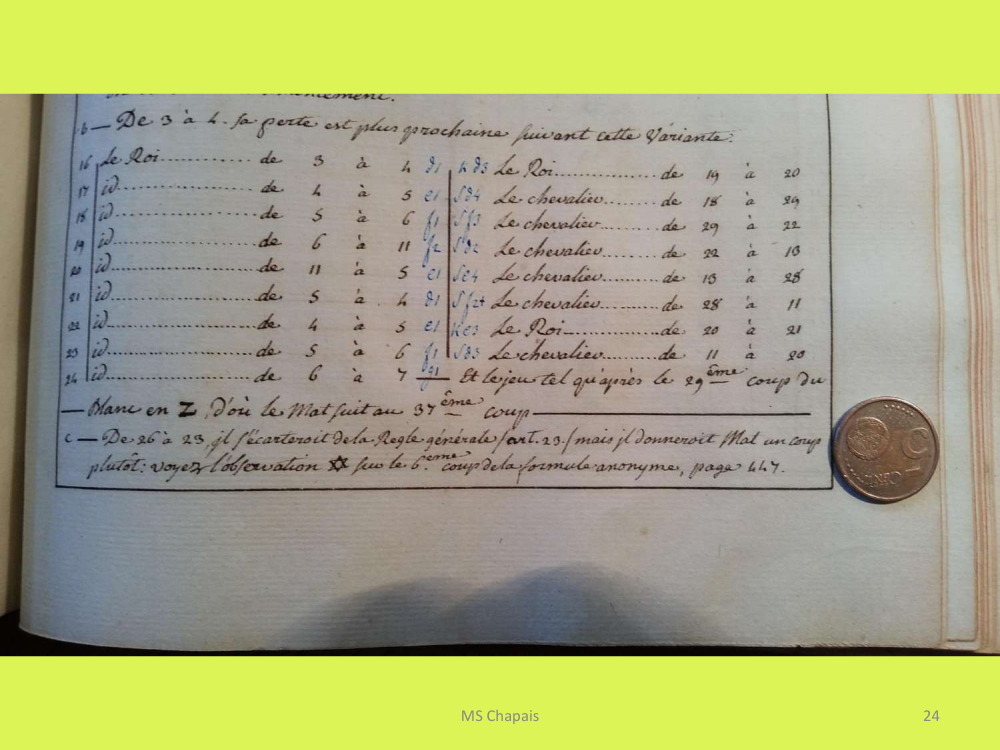 b — De 3 à 4. sa perte est plus prochaine suivant cette Variante.
16 Le Roi ............ de 3 à 4 d1 Kd3 Le Roi .................. de 19 à 20
17 id ........................ de 4 à 5 e1 Sd4 Le chevalier ........ de 18 à 29
18 id ........................ de 5 à 6 f1 Sf3 Le chevalier ......... de 29 à 22
19 id ........................ de 6 à 11 f2 Sd2 Le chevalier ......... de 22 à 13
20 id ........................ de 11 à 5 e1 Se4 Le chevalier ......... de 13 à 28
21 id ........................ de 5 à 4 d1 Sf2+ Le chevalier ......... de 28 à 11
22 id ........................ de 4 à 5 e1 Ke3 Le Roi .................. de 20 à 21
23 id ........................ de 5 à 6 f1 Sd3 Le chevalier ......... de 11 à 20
24 id ........................ de 6 à 7 g1 — Et le jeu tel qu'après le 29ème coup du
— Blanc en Z, d'où le Mat suit au 37ème coup —
c — De 26 à 23, il s'écarteroit de la Regle générale (art. 23.) mais il donneroit Mat un coup
plutôt: voyez l'observation ✡ sur le 6.ème coup de la formule anonyme, page 447.
MS Chapais
24